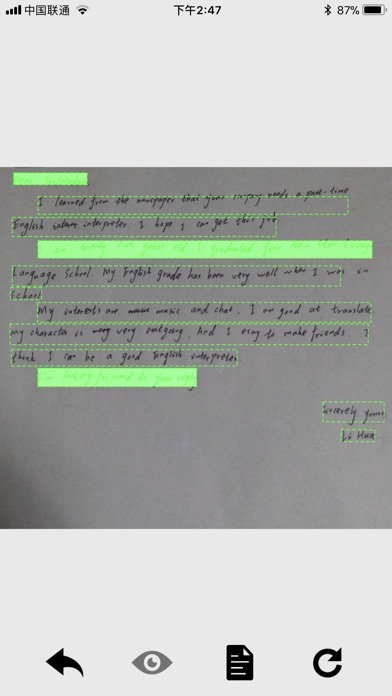 中国联通 下午2:47 87%
I learned from the newspaper that your needs a part-time
English interpreter I hope I can get this job.
am twenty two years old I graduated from
Language School. My English grade has been very well when I was in
School
My interests are music and chat. I am good at translate.
My character is very outgoing. And I easy to make friends. I
think I can be a good English interpreter
I'm looking forward to your reply
Sincerely yours
Li Hua